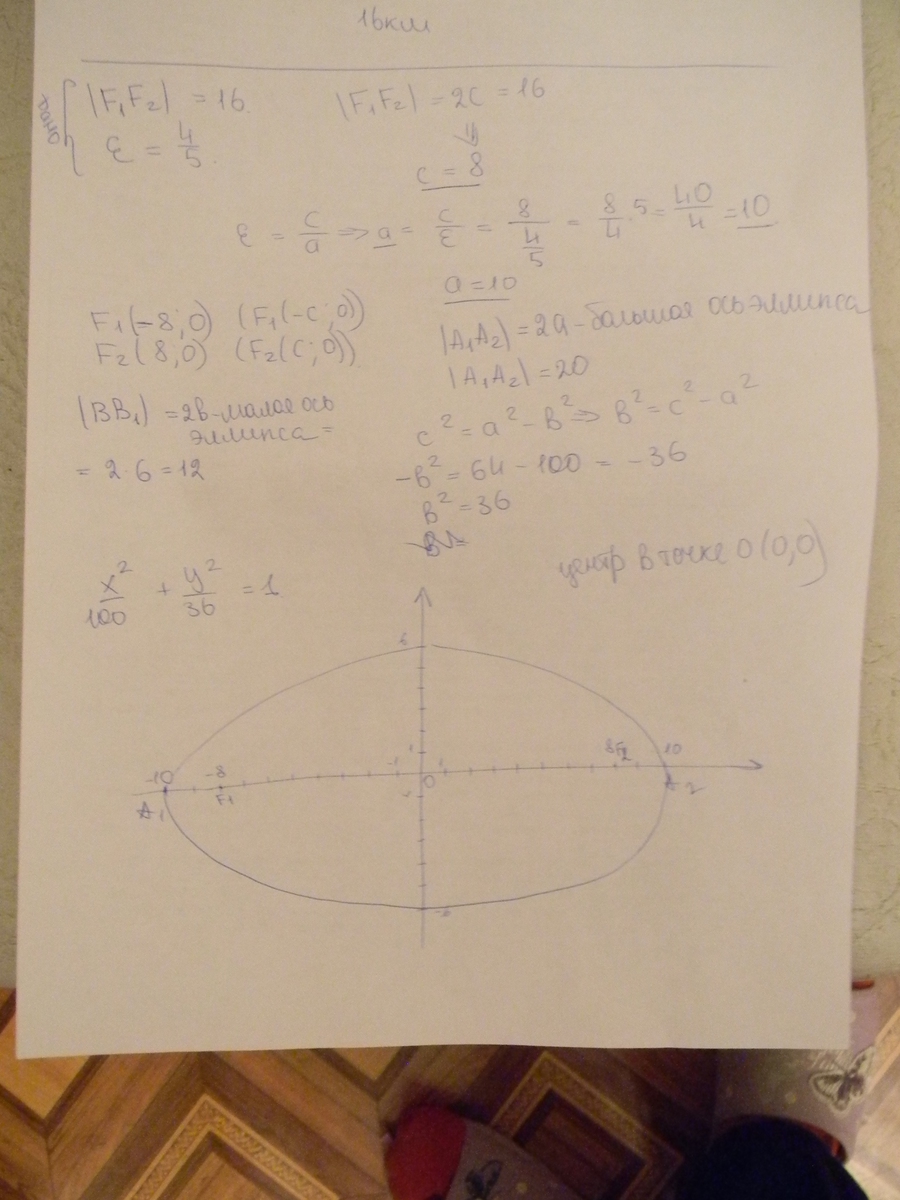 16км
дано
|F₁F₂| = 16.
ε = 4/5.
|F₁F₂| = 2c = 16
⇓
c = 8
ε = c/a ⇒ a = c/ε = 8/(4/5) = 8/4 · 5 = 40/4 = 10
a = 10
F₁(-8;0) (F₁(-c;0))
F₂(8;0) (F₂(c;0))
|A₁A₂| = 2a - большая ось эллипса
|A₁A₂| = 20
|BB₁| = 2в - малая ось
эллипса =
= 2·6 = 12
c² = a² - в² ⇒ в² = c² - a²
-в² = 64 - 100 = -36
в² = 36
центр в точке O(0,0)
x²/100 + y²/36 = 1
6
1
-10 -8 -1 0 1 8 F₂ 10
A₁ F₁ A₂